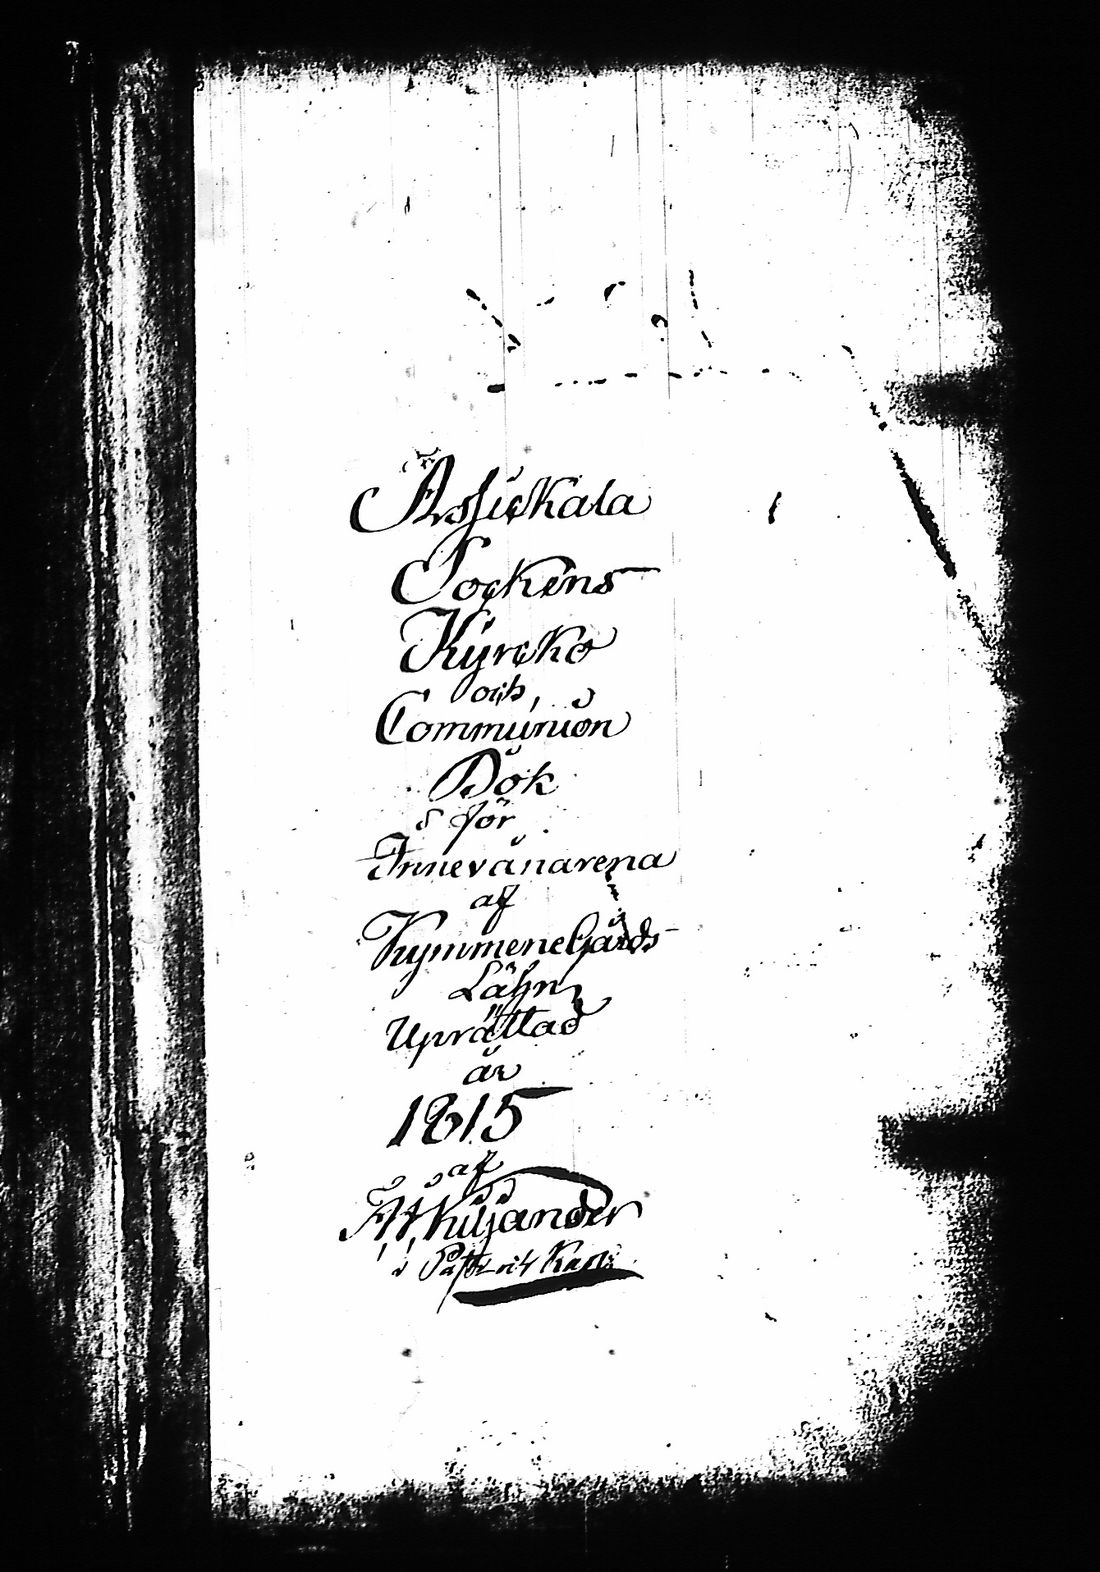 Assickala
Sockens
Kyrcko
och
Communion
Bok
för
Innevånarena
af
KymmeneGårds
Lähn
Uprättad
år
1815
af
Kiljander